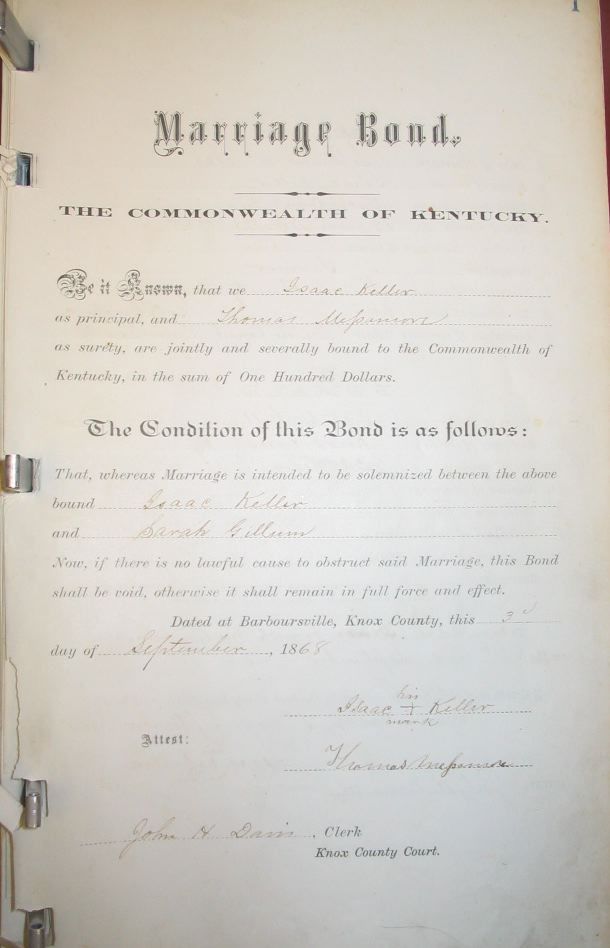 1
Marriage Bond.
THE COMMONWEALTH OF KENTUCKY.
Be it Known, that we Isaac Keller
as principal, and Thomas
as surety, are jointly and severally bound to the Commonwealth of
Kentucky, in the sum of One Hundred Dollars.
The Condition of this Bond is as follows:
That, whereas Marriage is intended to be solemnized between the above
bound Isaac Keller
and Sarah Gillum
Now, if there is no lawful cause to obstruct said Marriage, this Bond
shall be void, otherwise it shall remain in full force and effect.
Dated at Barboursville, Knox County, this 3d
day of September, 1868
his
Isaac + Keller
mark
Attest:
Thomas
John H Davis, Clerk
Knox County Court.